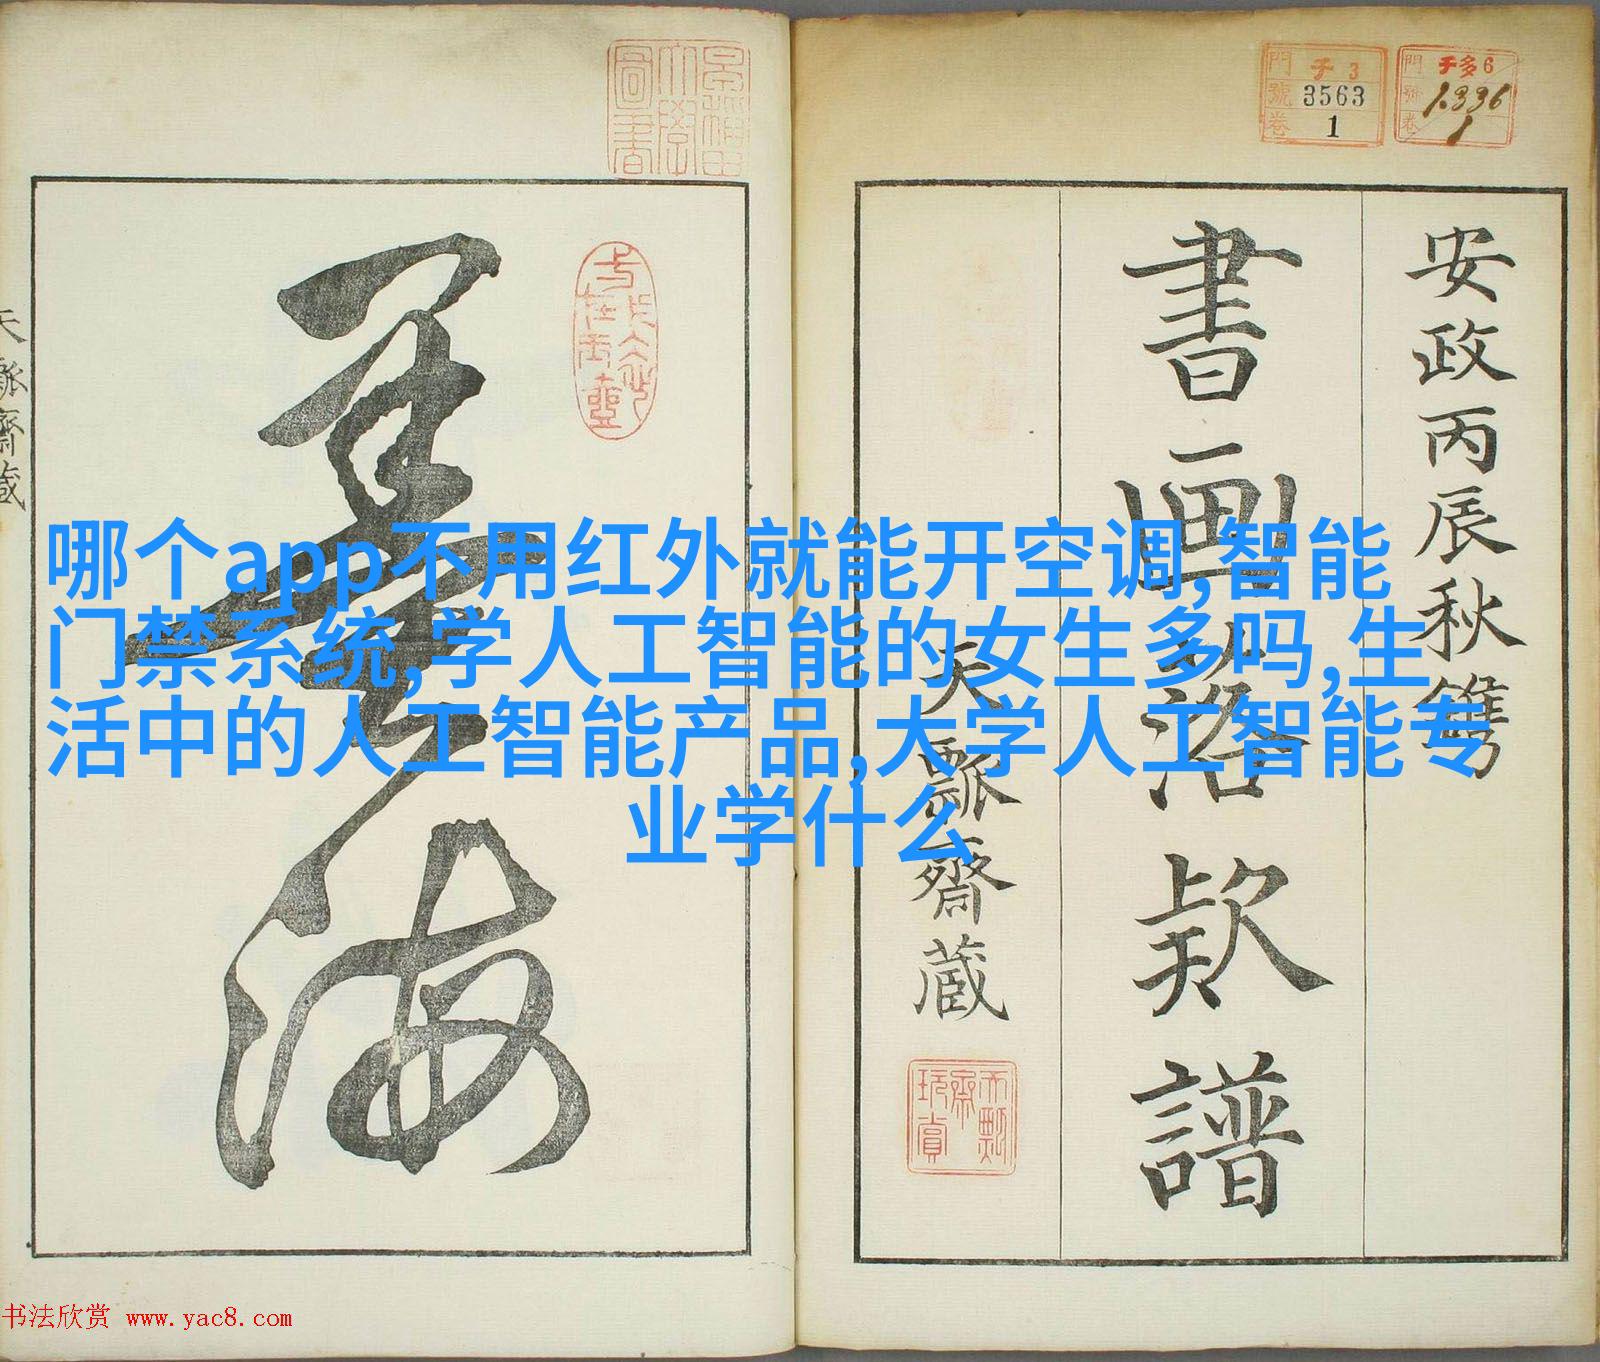 安政丙辰秋鐫
書画落款譜
天瓢齋蔵
門 チ 3
號 3563
卷 1
門 チ多 6
號 1336
卷 1
墨海
天瓢齋蔵
哪个app不用红外就能开空调,智能
门禁系统,学人工智能的女生多吗,生
活中的人工智能产品,大学人工智能专
业学什么
书法欣赏 www.yac8.com